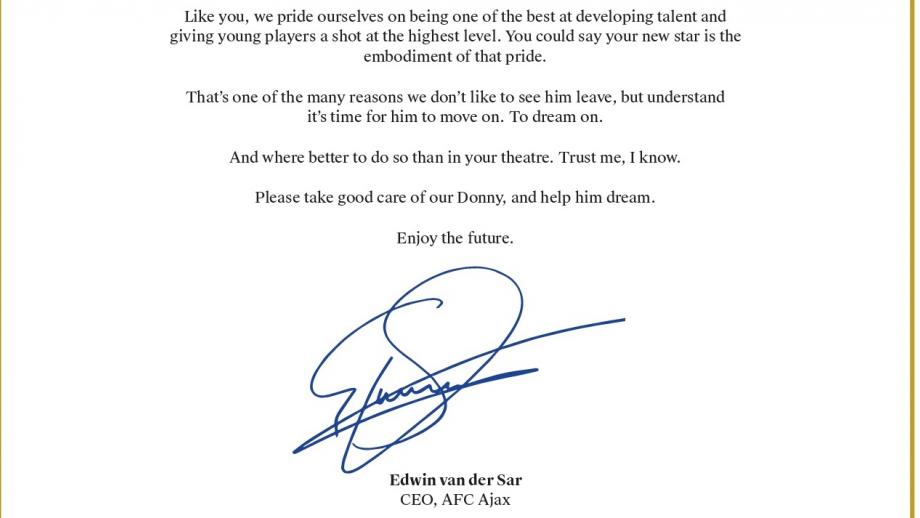 Like you, we pride ourselves on being one of the best at developing talent and
giving young players a shot at the highest level. You could say your new star is the
embodiment of that pride.
That’s one of the many reasons we don’t like to see him leave, but understand
it’s time for him to move on. To dream on.
And where better to do so than in your theatre. Trust me, I know.
Please take good care of our Donny, and help him dream.
Enjoy the future.
Edwin van der Sar
CEO, AFC Ajax